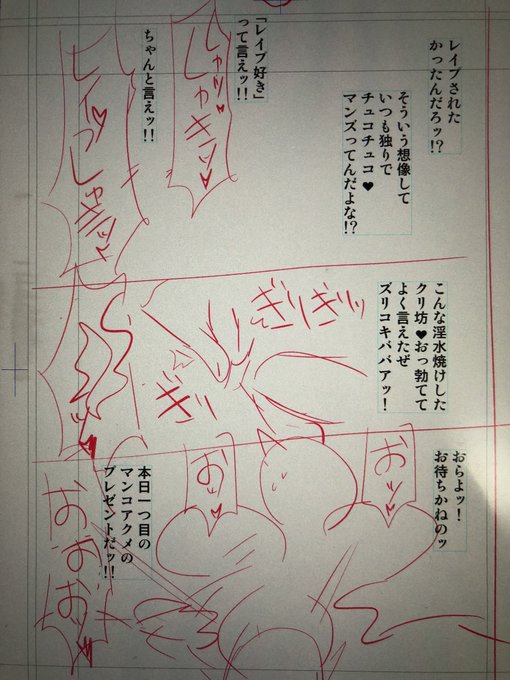 レイプされた
かったんだろッ!?
そういう想像して
いつも独りで
チュコチュコ♥
マンズってんだよな!?
「レイプ好き」
って言えッ!!
ちゃんと言えッ!!
こんな淫水焼けした
クリ坊♥おっ勃てて
よく言えたぜ
ズリコキババアッ!
ぎりぎりッ
ぎり
おらよッ!
お待ちかねのッ
おッ♥
おッ♥
本日一つ目の
マンコアクメの
プレゼントだッ!!
おおおッ♥